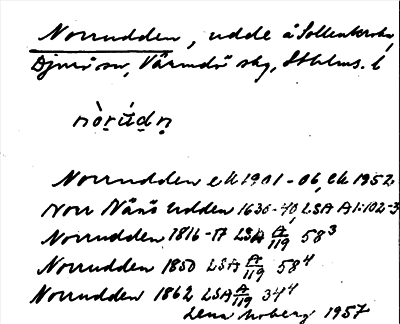 Norrudden, udde å Sollenkroka,
Djurö sn, Värmdö skg, Sthlms. l
nòrúdn
Norrudden ek 1901-06, ek 1952
Norr Näs Udden 1630-40, LSA A1:102-3
Norrudden 1816-17 LSA A/119 58³
Norrudden 1850 LSA A/119 58⁴
Norrudden 1862 LSA A/119 34⁴
Lena Moberg 1957